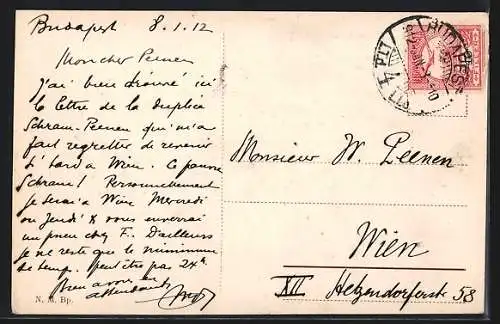 Budapest 8.1.12
Mon cher Peenen
J'ai bien trouvé ici
la lettre de la duplice
Schram-Peenen qui m'a
fait regretter de revenir
si tard a Wien. Ce pauvre
Schram! Personnellement
je serai à Wien Mercredi
ou Jeudi & vous enverrai
un pneu chez F. D'ailleurs
je ne reste que le minimum
de temp. peut être pas 24h
Bien a vous en
attendant
N. M. Bp.
BUDAPEST
Monsieur W. Peenen
Wien
XII Hetzendorferstr 58